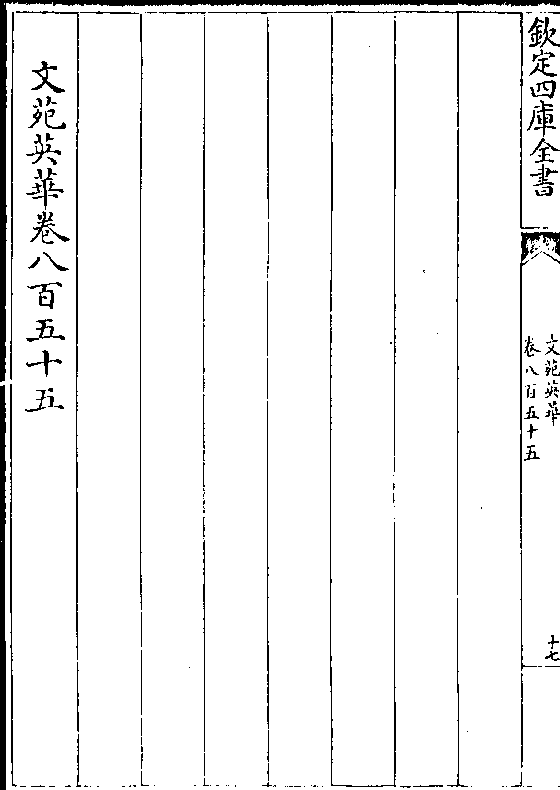 欽定四庫全書
文苑英華
卷八百五十五
十七
文苑英華卷八百五十五